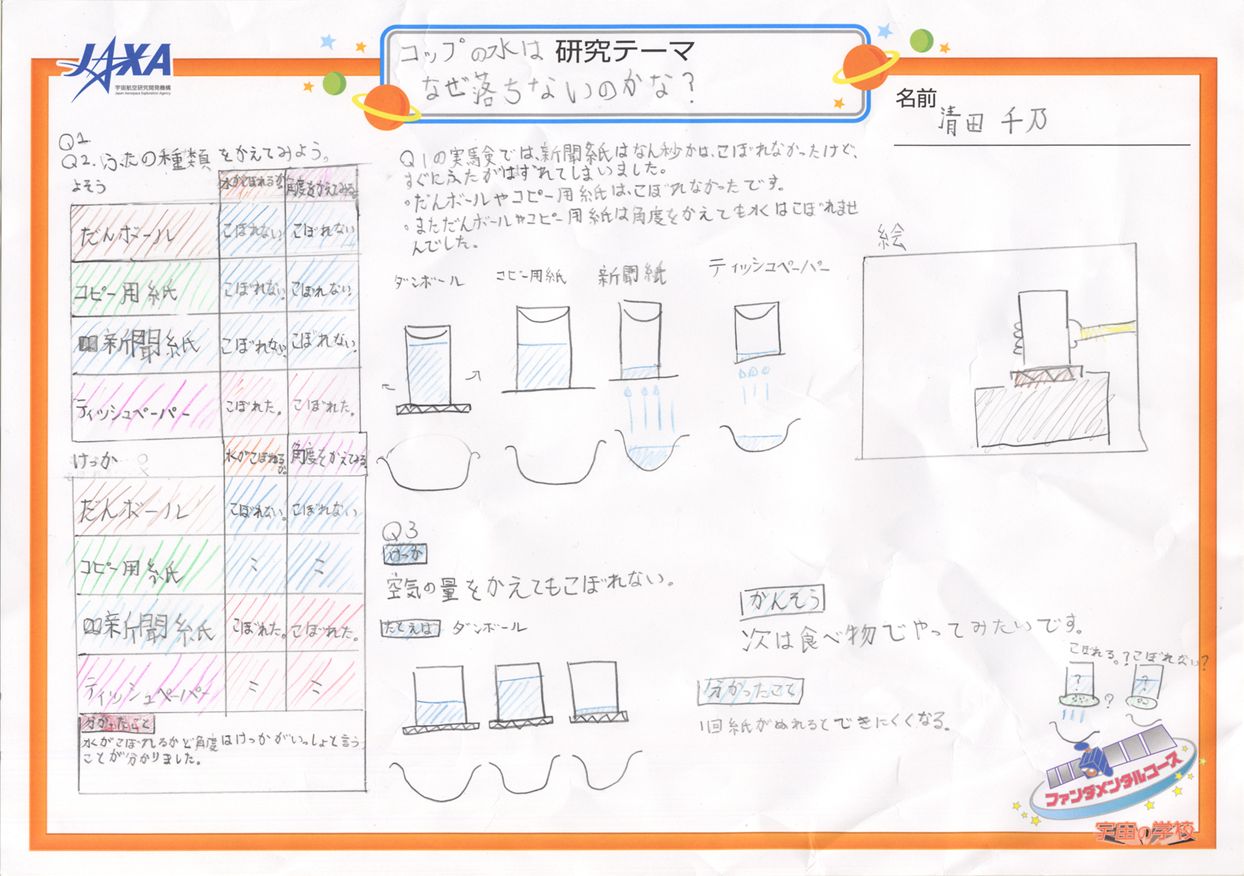 JAXA
宇宙航空研究開発機構
Japan Aerospace Exploration Agency
コップの水は 研究テーマ
なぜ落ちないのかな？
名前
清田 千乃
Q1
Q2.ふたの種類をかえてみよう。
よそう
水がこぼれるか
角度をかえてみる
だんボール
こぼれない
こぼれない
コピー用紙
こぼれない。
こぼれない。
新聞紙
こぼれない。
こぼれない。
ティッシュペーパー
こぼれた。
こぼれた。
けっか
水がこぼれるか
角度をかえてみる
だんボール
こぼれない。
こぼれない
コピー用紙
〃
〃
新聞紙
こぼれた。
こぼれた。
ティッシュペーパー
〃
〃
分かったこと
水がこぼれるかと角度はけっかがいっしょと言う
ことが分かりました。
Q1の実験では、新聞紙はなん秒かは、こぼれなかったけど、
すぐにふたがはずれてしまいました。
。だんボールやコピー用紙は、こぼれなかったです。
。まただんボールやコピー用紙は角度をかえても水はこぼれませ
んでした。
ダンボール
コピー用紙
新聞紙
ティッシュペーパー
絵
Q3
けっか
空気の量をかえてもこぼれない。
たとえば ダンボール
かんそう
次は食べ物でやってみたいです。
こぼれる。？こぼれない？
?
?
?
分かったこと
1回紙がぬれるとできにくくなる。
ファンダメンタルコース
宇宙の学校